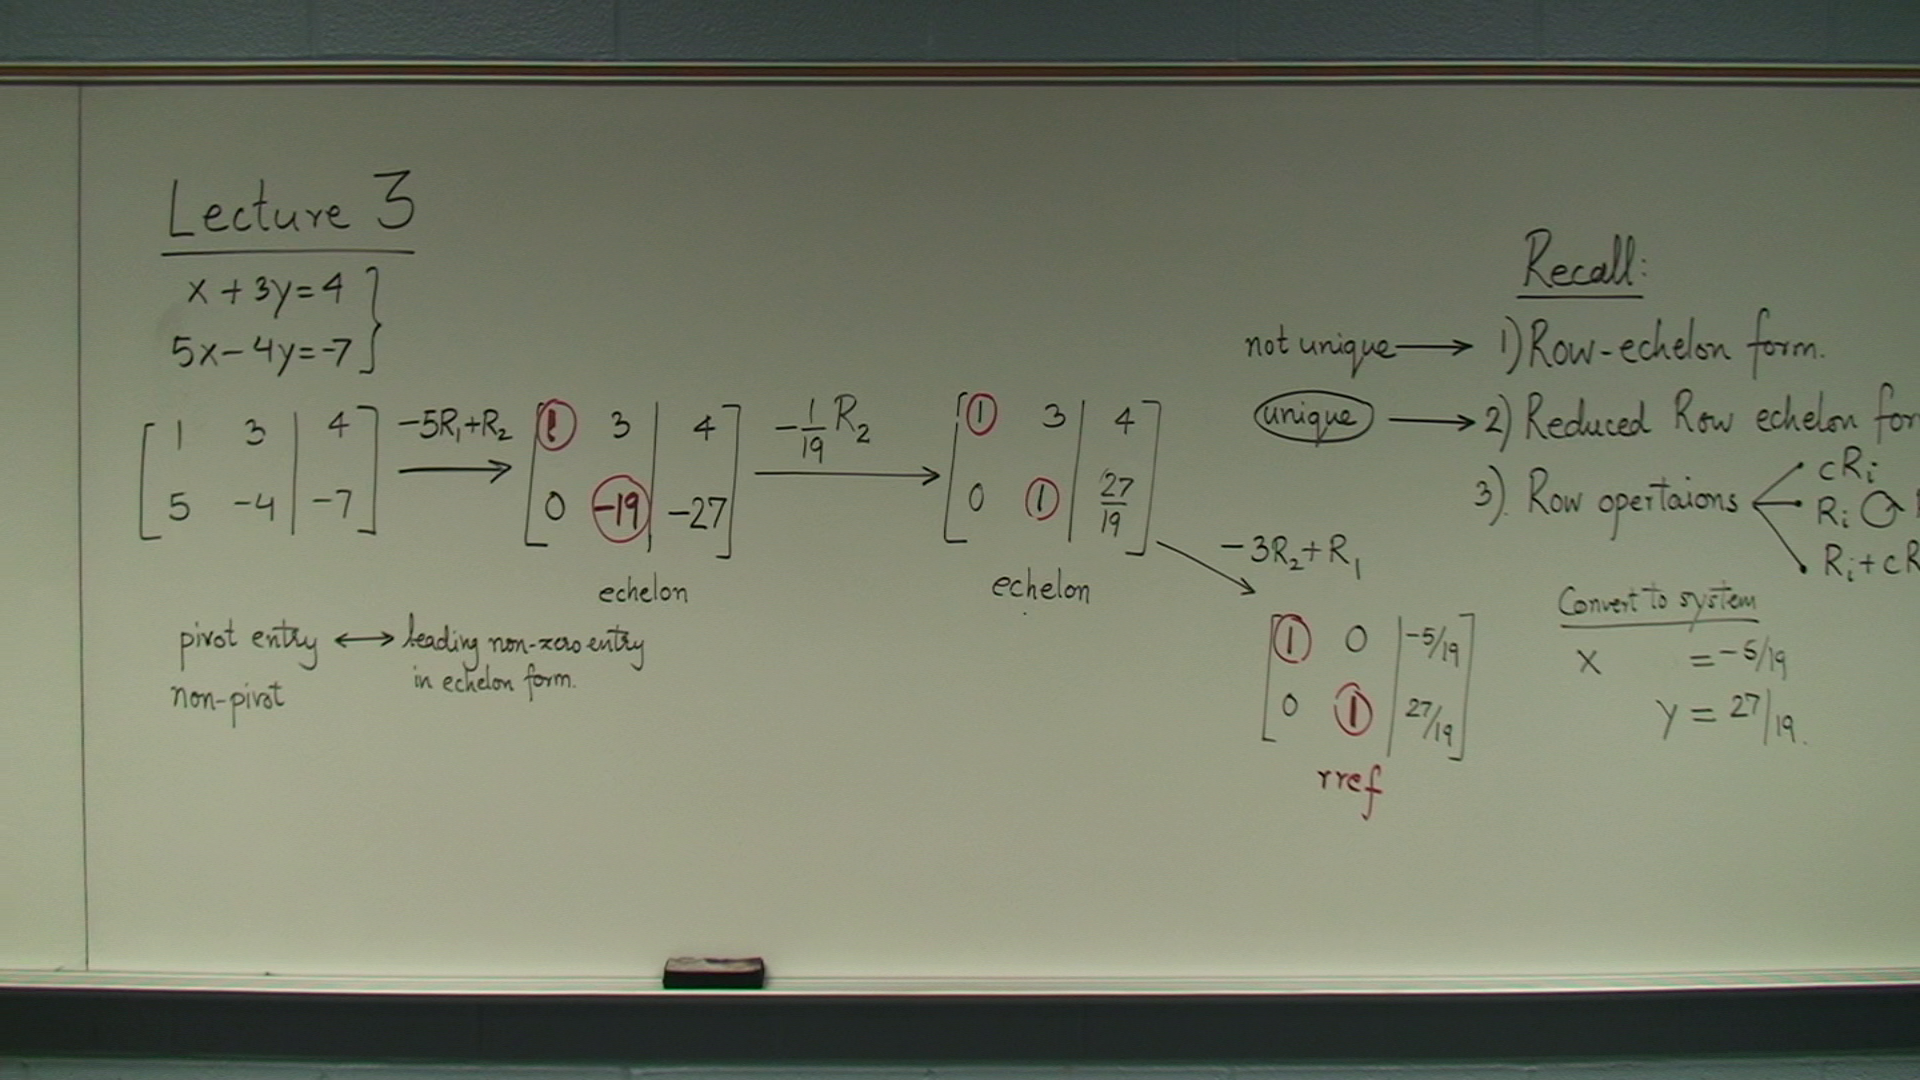 Lecture 3
x + 3y = 4
5x - 4y = -7
1 3 4
5 -4 -7
-5R₁+R₂
1 3 4
0 -19 -27
echelon
-1/19 R₂
1 3 4
0 1 27/19
echelon
-3R₂+R₁
1 0 -5/19
0 1 27/19
rref
pivot entry ↔ leading non-zero entry
in echelon form.
non-pivot
Recall:
not unique → 1) Row-echelon form.
unique → 2) Reduced Row echelon for
3). Row opertaions
cRᵢ
Rᵢ
Rᵢ + cR
Convert to system
x = -5/19
y = 27/19.